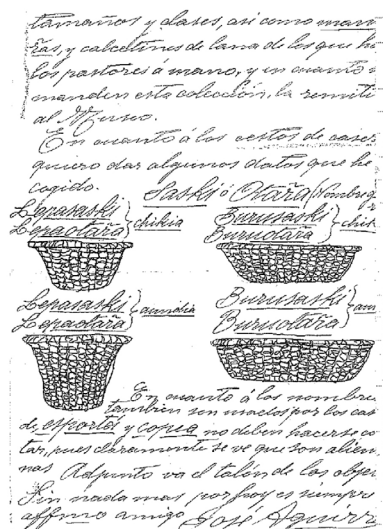 tamaños y clases, así como man
ras, y calcetines de lana de los que h
los pastores á mano, y en cuanto
manden esta colección, la remiti
al Museo.
En cuanto á los cestos de caser
quiero dar algunos datos que he
cogido. Saski ó Otaŕa (Nombre g
Leparaski } chikia
Lepaotaŕa
Burusaski } chik
Buruotaŕa
Leparaski } aundia
Lepaotaŕa
Burusaski } aun
Buruotaŕa
En cuanto á los nombre
tambien son usados por los cas
de, esporta y copea no deben hacerse co
tar, pues claramente se ve que son alien
nas Adjunto va el talón de los obje
Sin nada mas por hoy es siempre
affmo amigo José Aguirr